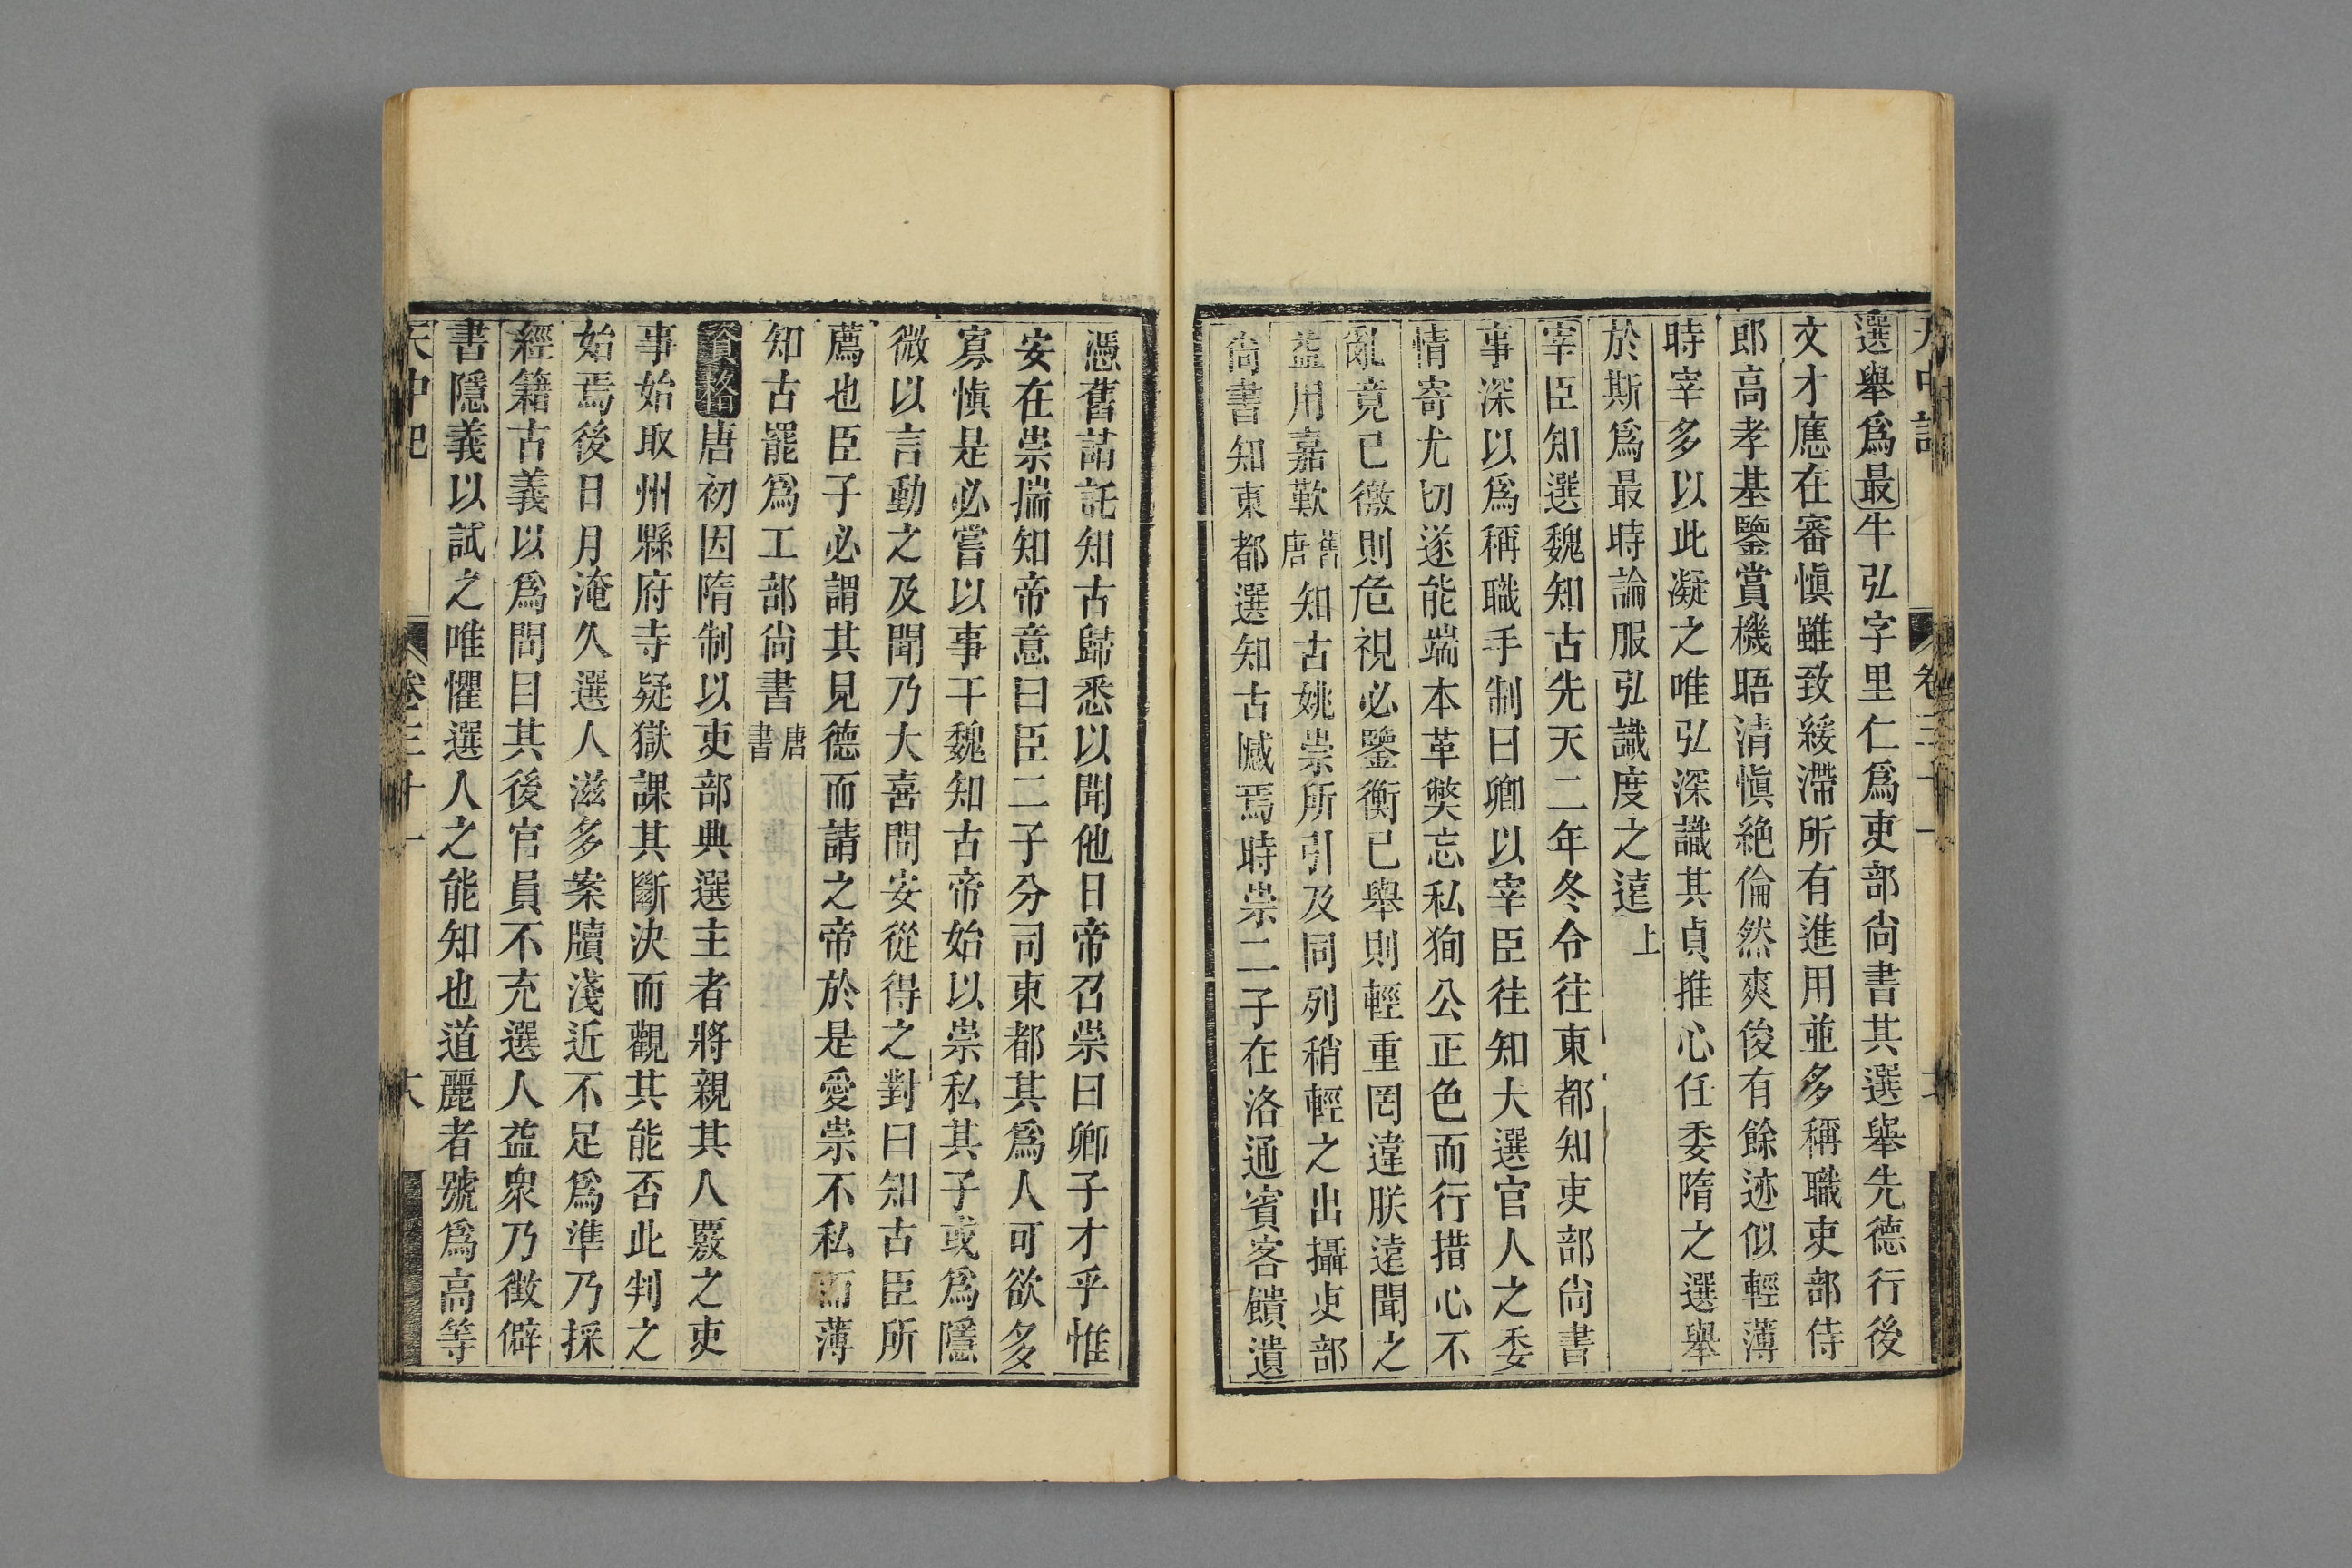 選舉爲最牛弘字里仁爲吏部尙書其選舉先德行後
文才應在審愼雖致綏滯所有進用並多稱職吏部侍
郎高孝基鑒賞機晤清愼絶倫然爽俊有餘迹似輕薄
時宰多以此凝之唯弘深識其貞推心任委隋之選舉
於斯爲最時論服弘識度之遠上
宰臣知選魏知古先天二年冬令往東都知吏部尙書
事深以爲稱職手制曰卿以宰臣往知大選官人之委
情寄尤切遂能端本革獘忘私狥公正色而行措心不
亂竟已徼則危視必鑒衡已舉則輕重罔違朕遠聞之
益用嘉歎舊唐知古姚崇所引及同列稍輕之出攝吏部
尙書知東都選知古憾焉時崇二子在洛通賓客饋遺
憑舊詔託知古歸悉以聞他日帝召崇曰卿子才乎惟
安在崇揣知帝意曰臣二子分司東都其爲人可欲多
寡愼是必嘗以事干魏知古帝始以崇私其子或爲隱
微以言動之及聞乃大喜問安從得之對曰知古臣所
薦也臣子必謂其見德而請之帝於是愛崇不私而薄
知古罷爲工部尙書唐書
資格唐初因隋制以吏部典選主者將親其人覈之吏
事始取州縣府寺疑獄課其斷決而觀其能否此判之
始焉後日月淹久選人滋多案牘淺近不足爲準乃採
經籍古義以爲問目其後官員不充選人益衆乃徵僻
書隱義以試之唯懼選人之能知也道麗者號爲高等
天中記 卷三十一